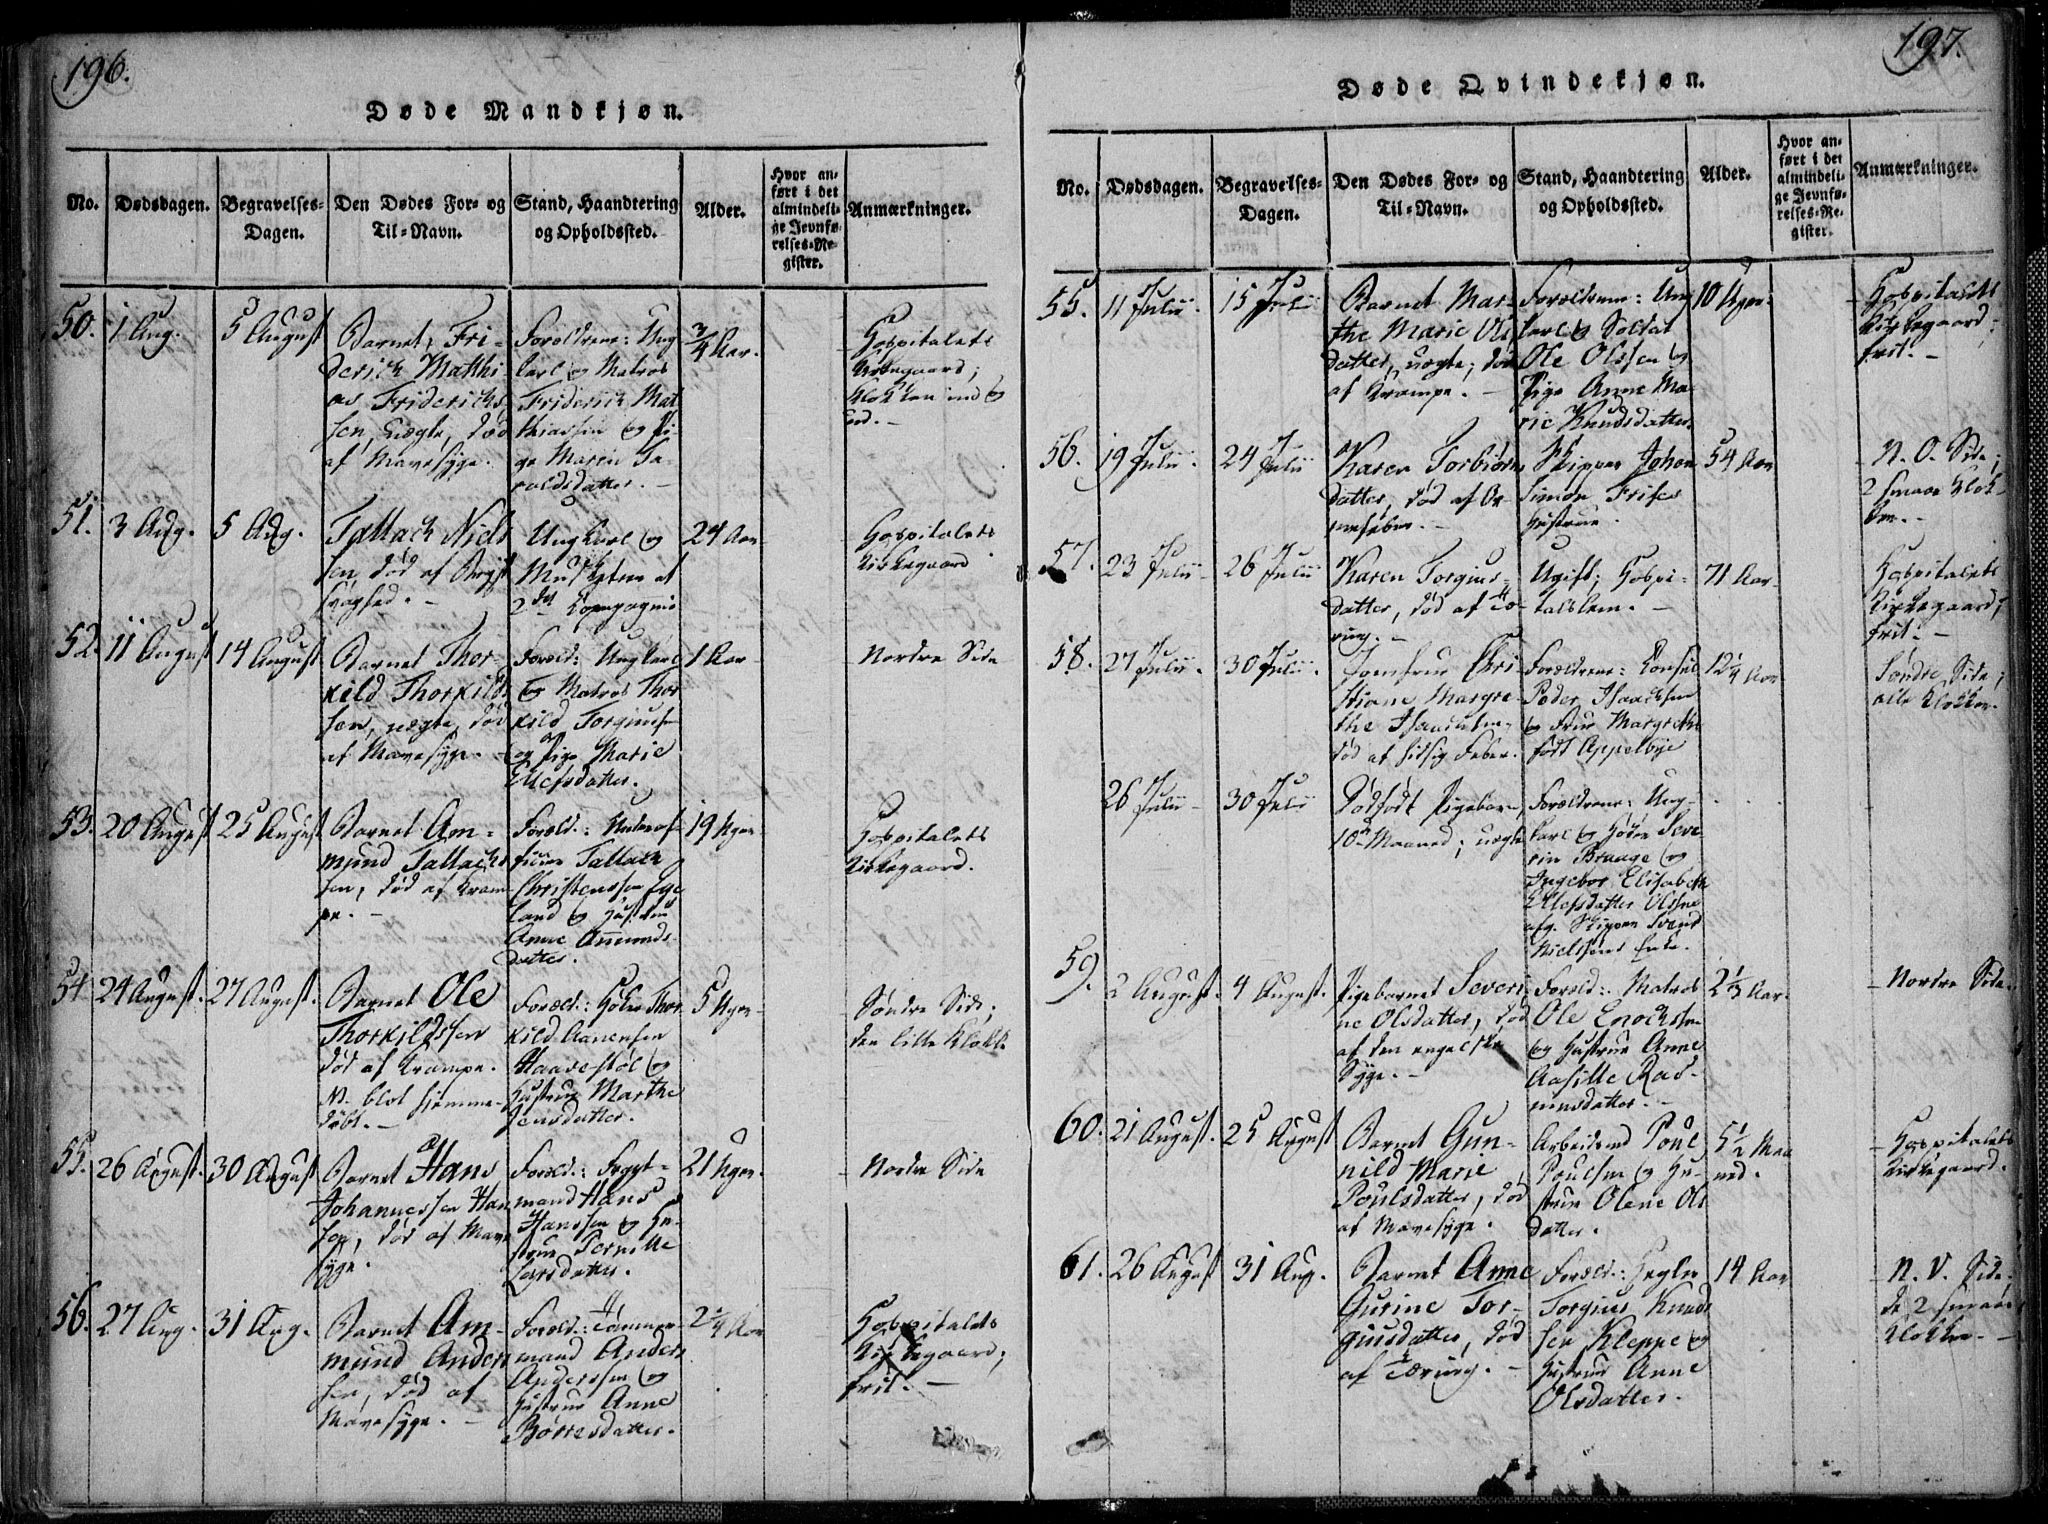 196.
Døde Mandkjøn.
No.
Dødsdagen.
Begravelses-
Dagen.
Den Dødes For- og
Til-Navn.
Stand, Haandtering
og Opholdssted.
Alder.
Hvor an-
ført i det
almindeli-
ge Jevnfø-
relses-Re-
gister.
Anmærkninger.
50.
1 Aug.
5 August
Barnet Fri-
derich Matthi-
as Friderichs
sen, uægte, død
af Mavesyge.
Forældrene: Ung
karl og Matros
Friderich Mat
thiassen og Pi-
ge Maren Ta-
raldsdatter.
3/4 Aar.
Hospitalets
Kirkegaard;
Klokken ind og
ud.
51.
3 Aug.
5 Aug.
Tallach Niels
sen, død af Bryst
svaghed.
Ungkarl og
Musketeer af
2det Compagnie
24 Aar
Hospitalets
Kirkegaard
52.
11 August
14 August
Barnet Thor-
kild Thorkilds
sen, uægte, død
af Mavesyge.
Foræld: Ungkarl
og Matros Thor
kild Torgiuss
og Pige Marie
Ellefsdatter.
1 Aar
Nordre Side
53.
20 August
25 August
Barnet Am-
mund Tallachs
sen, død af Kram-
pe.
Foræld.: Underof-
ficier Tallach
Christenssen Ege
land og Hustrue
Anne Ammunds-
datter.
19 Uger
Hospitalets
Kirkegaard.
54
24 August.
27 August.
Barnet Ole
Thorkildssen
død af Krampe.
NB. blot hjemme-
døbt.
Foræld.: Høker Thor
kild Aanensen
Haavestøl og
Hustrue Marthe
Jensdatter.
5 Uger
Søndre Side;
den lille Klokke
55.
26 August.
30 August
Barnet Hans
Johannessen Han
sen, død af Mave
syge.
Foræld.: Fragt-
mand Hans
Hanssen og Hu-
strue Pernille
Larsdatter.
21 Uger.
Nordre Side
56.
27 Aug.
31 Aug.
Barnet Am-
mund Anders
sen, død af
Mavesyge.
Foræld.: Tømmer-
mand Anders
Anderssen og
Hustrue Anne
Børresdatter.
2 1/4 Aar
Hospitalets
Kirkegaard;
frit.
197.
Døde Qvindekjøn.
No.
Dødsdagen.
Begravelses-
Dagen.
Den Dødes For- og
Til-Navn.
Stand, Haandtering
og Opholdssted.
Alder.
Hvor an-
ført i det
almindeli-
ge Jevnfø-
relses-Re-
gister.
Anmærkninger.
55.
11 Julii.
15 Julii
Barnet Mar-
the Marie Ols
datter, uægte; død
af Krampe.
Forældrene: Ung
karl og Soldat
Ole Olssen og
Pige Anne Ma-
rie Knudsdatter
10 Uger
Hospitalets
Kirkegaard;
frit.
56.
19 Julii.
24 Julii
Karen Torbiørns
datter, død af
Skipper Johan
Simon Friises
Hustrue.
54 Aar
N. O. Side;
2 smaae Klok-
ker.
57.
23 Julii
26 Julii
Karen Torgius-
datter, død af Tæ-
ring.
Ugift; Hospi-
talslem.
71 Aar
Hospitalets
Kirkegaard;
frit.
58.
27 Julii.
30 Julii.
Jomfrue Chri
stiane Margre-
the Isaachsen
død af hidsig Feber.
Forældrene: Consul
Peder Isaachsen
og Frue Margrethe
født Appelbye
12 1/4 Aar
Søndre Side;
alle Klokker.
26 Julii
30 Julii
Dødfødt Pigebarn,
10de Maaned; uægte
Forældrene: Ung-
karl og Høker Seve-
rin Braage og
Ingebor Elisabeth
Ellefsdatter Olsne
afg. Skipper Svend
Nielssens Enke.
59.
2 August.
4 August.
Pigebarnet Severi-
ne Olsdatter, død
af den engelske
Syge.
Foræld.: Matros
Ole Enochssen
og Hustrue Anne
Aasille Ras-
musdatter.
2 1/3 Aar.
Nordre Side.
60.
21 August.
25 August
Barnet Gun-
nild Marie
Poulsdatter, død
af Mavesyge.
Arbeidsmd Poul
Poulsen og Hu-
strue Olene Ols
datter.
5 1/2 Maa
ned.
Hospitalets
Kirkegaard.
61.
26 August
31 Aug.
Barnet Anne
Gurine Tor-
giusdatter, død
af Tæring.
Foræld.: Hegler
Torgius Knuds
sen Kleppe og
Hustrue Anne
Olsdatter.
14 Aar
N. V. Side.
de 2 smaae
Klokker.